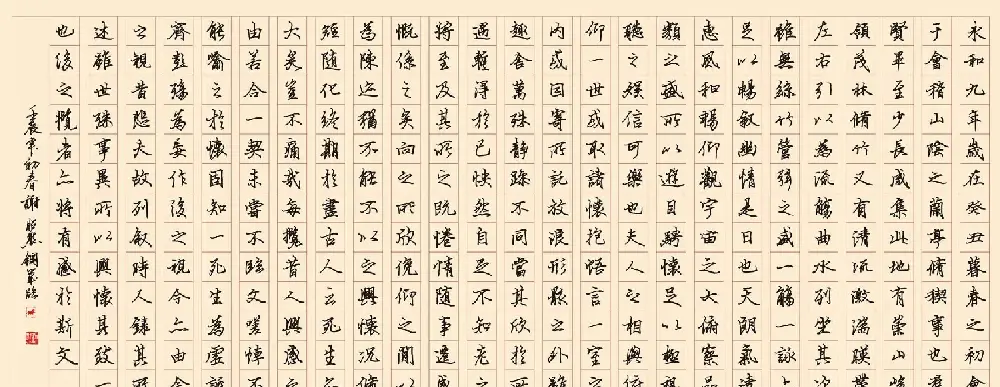 永和九年歲在癸丑暮春之初
于會稽山陰之蘭亭脩禊事也
賢畢至少長咸集此地有崇山
領茂林脩竹又有清流激湍暎
左右引以為流觴曲水列坐其
雖無絲竹管弦之盛一觴一詠
足以暢敘幽情是日也天朗氣
惠風和暢仰觀宇宙之大俯察
類之盛所以遊目騁懷足以極
聽之娛信可樂也夫人之相與
仰一世或取諸懷抱悟言一室
內或因寄所託放浪形骸之外
趣舍萬殊靜躁不同當其欣於
遇暫得於己快然自足不知老
將至及其所之既惓情隨事遷
慨係之矣向之所欣俛仰之間
為陳迹猶不能不以之興懷況
短隨化終期於盡古人云死生
大矣豈不痛哉每攬昔人興感
由若合一契未嘗不臨文嗟悼
能喻之於懷固知一死生為虛
齊彭殤為妄作後之視今亦由
之視昔悲夫故列敘時人錄其
述雖世殊事異所以興懷其致
也後之攬者亦將有感於斯文
壬辰年初春謝鋼筆臨